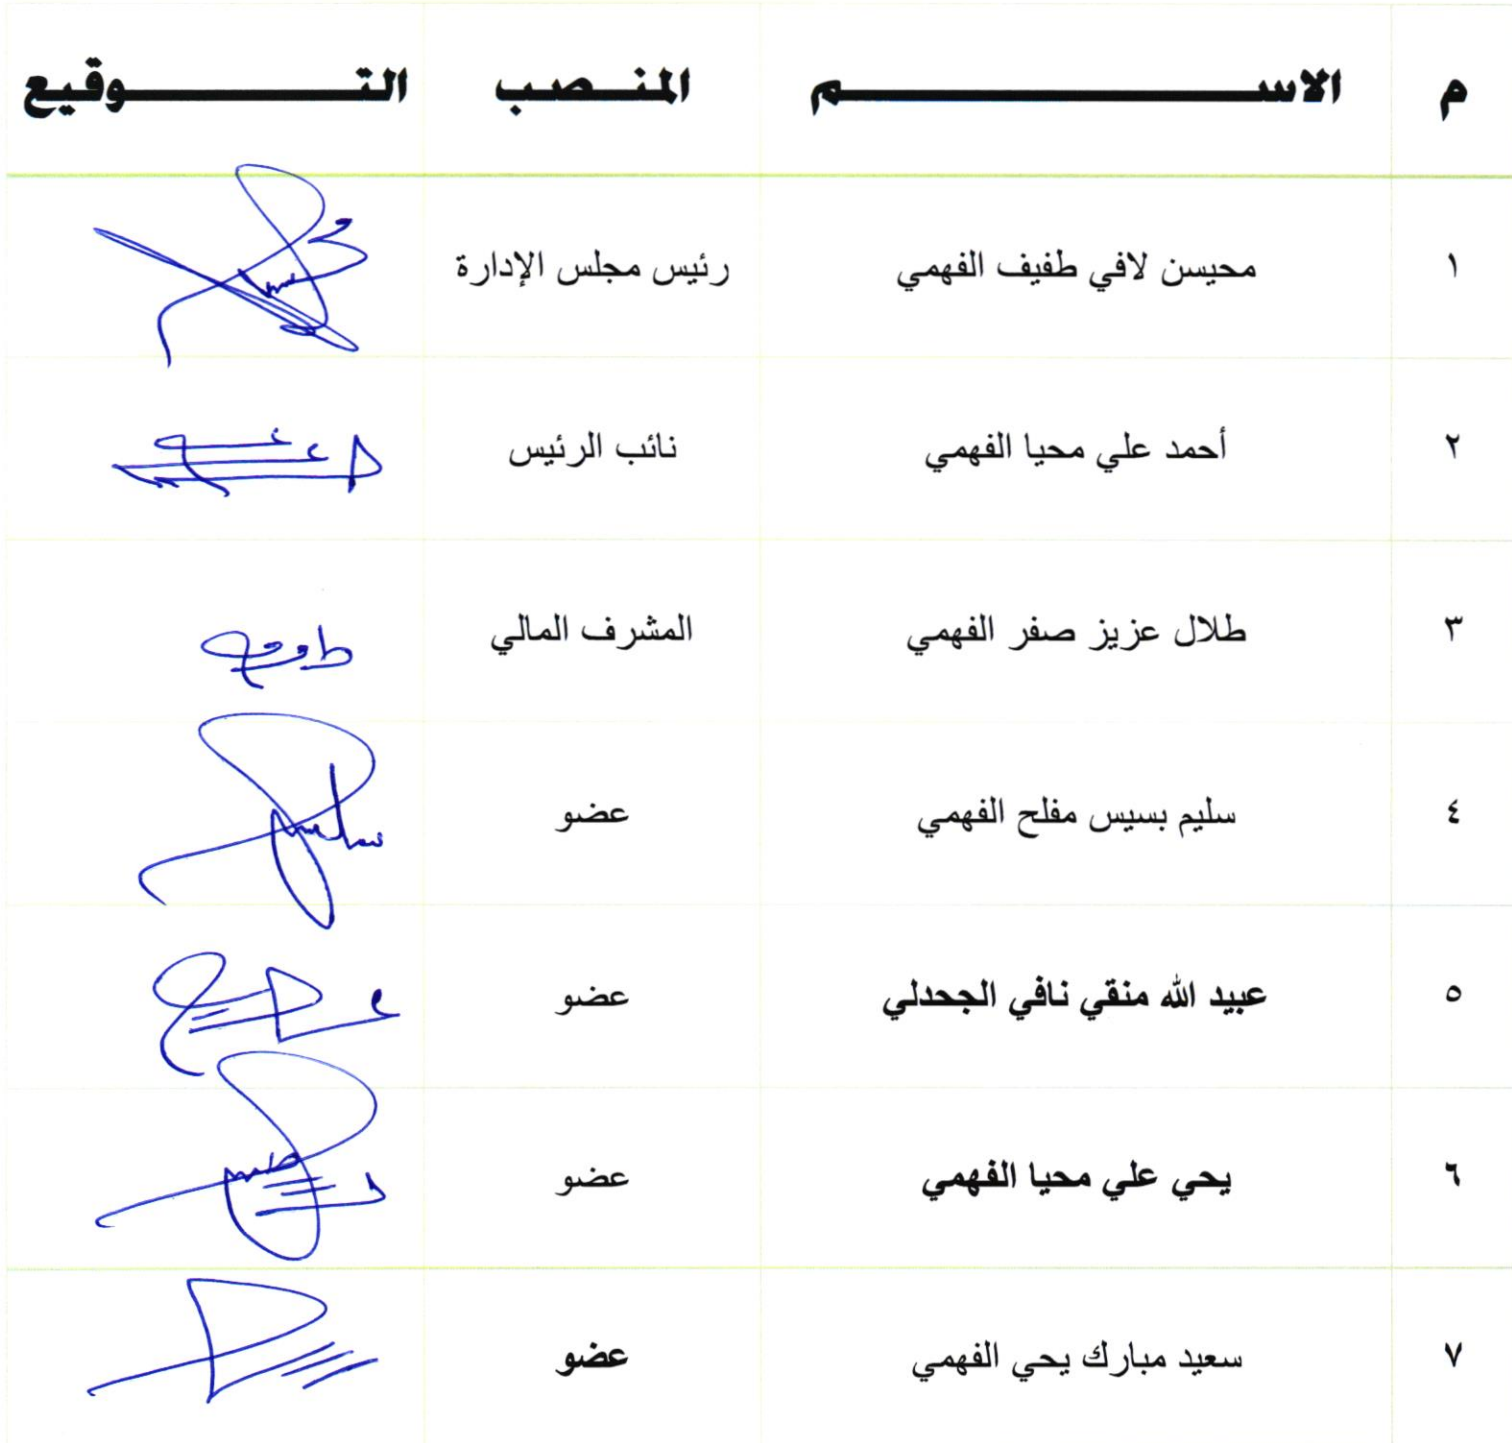 م الاســـم المنـصب التـــوقيع
١ محيسن لافي طفيف الفهمي رئيس مجلس الإدارة
٢ أحمد علي محيا الفهمي نائب الرئيس
٣ طلال عزيز صفر الفهمي المشرف المالي
٤ سليم بسيس مفلح الفهمي عضو
٥ عبيد الله منقي نافي الجحدلي عضو
٦ يحي علي محيا الفهمي عضو
٧ سعيد مبارك يحي الفهمي عضو